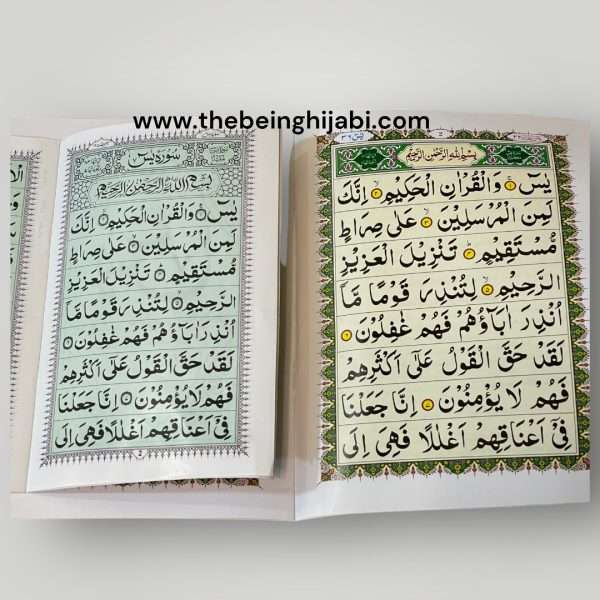 www.thebeinghijabi.com
سورة يس
بسم الله الرحمن الرحيم
يٰسٓ ۚ وَالْقُرْاٰنِ الْحَكِيْمِ ۙ اِنَّكَ
لَمِنَ الْمُرْسَلِيْنَ ۙ عَلٰى صِرَاطٍ
مُّسْتَقِيْمٍ ؕ تَنْزِيْلَ الْعَزِيْزِ
الرَّحِيْمِ ۙ لِتُنْذِرَ قَوْمًا مَّاۤ
اُنْذِرَ اٰبَآؤُهُمْ فَهُمْ غٰفِلُوْنَ
لَقَدْ حَقَّ الْقَوْلُ عَلٰٓى اَكْثَرِهِمْ
فَهُمْ لَا يُؤْمِنُوْنَ اِنَّا جَعَلْنَا
فِيْۤ اَعْنَاقِهِمْ اَغْلٰلًا فَهِيَ اِلَى
يٰسٓ ٣٦
بِسْمِ اللّٰهِ الرَّحْمٰنِ الرَّحِيْمِ
يٰسٓ ۚ ١ وَالْقُرْاٰنِ الْحَكِيْمِ ۙ ٢ اِنَّكَ
لَمِنَ الْمُرْسَلِيْنَ ۙ ٣ عَلٰى صِرَاطٍ
مُّسْتَقِيْمٍ ؕ ٤ تَنْزِيْلَ الْعَزِيْزِ
الرَّحِيْمِ ۙ ٥ لِتُنْذِرَ قَوْمًا مَّاۤ
اُنْذِرَ اٰبَآؤُهُمْ فَهُمْ غٰفِلُوْنَ ٦
لَقَدْ حَقَّ الْقَوْلُ عَلٰٓى اَكْثَرِهِمْ
فَهُمْ لَا يُؤْمِنُوْنَ ٧ اِنَّا جَعَلْنَا
فِيْۤ اَعْنَاقِهِمْ اَغْلٰلًا فَهِيَ اِلَى